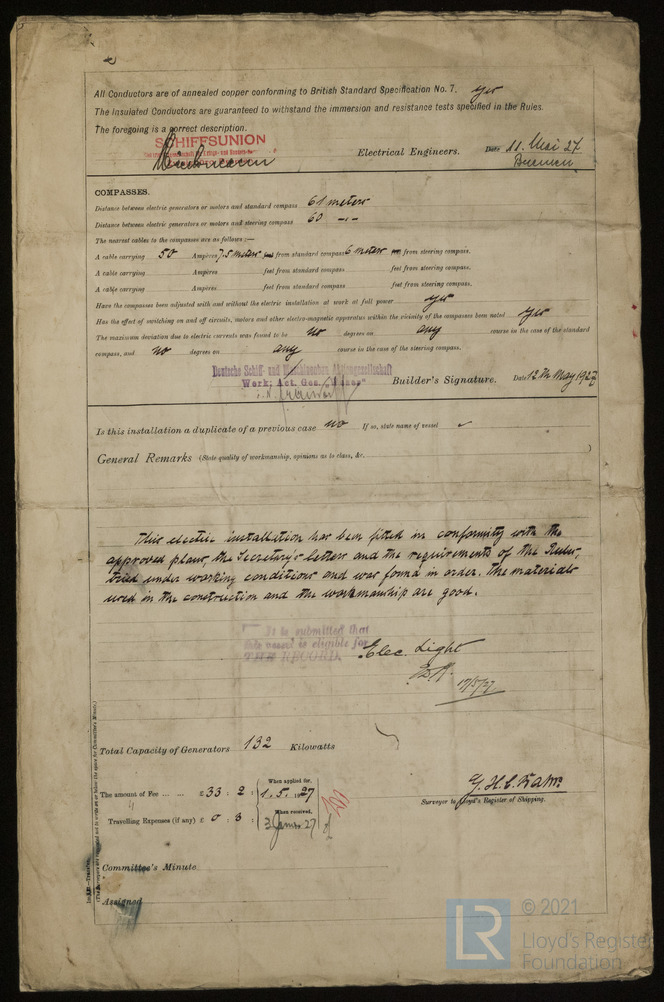 All Conductors are of annealed copper conforming to British Standard Specification No. 7. yes
The Insulated Conductors are guaranteed to withstand the immersion and resistance tests specified in the Rules.
The foregoing is a correct description.
SCHIFFSUNION
Electrical Engineers. Date 11. Mai 27
Bremen
COMPASSES.
Distance between electric generators or motors and standard compass 61 meters
Distance between electric generators or motors and steering compass 60 -,,-
The nearest cables to the compasses are as follows:—
A cable carrying 50 Ampères 7,5 meters feet from standard compass 6 meters feet from steering compass.
A cable carrying Ampères feet from standard compass feet from steering compass.
A cable carrying Ampères feet from standard compass feet from steering compass.
Have the compasses been adjusted with and without the electric installation at work at full power yes
Has the effect of switching on and off circuits, motors and other electro-magnetic apparatus within the vicinity of the compasses been noted yes
The maximum deviation due to electric currents was found to be no degrees on any course in the case of the standard
compass, and no degrees on any course in the case of the steering compass.
Deutsche Schiff- und Maschinenbau Aktiengesellschaft
Werk: Act. Ges. „Weser"
Builder's Signature. Date 12th May 1927
Is this installation a duplicate of a previous case no If so, state name of vessel
General Remarks (State quality of workmanship, opinions as to class, &c.
This electric installation has been fitted in conformity with the
approved plans, the Secretary's letters and the requirements of the Rules,
tried under working conditions and was found in order. The materials
used in the construction and the workmanship are good.
It is submitted that
this vessel is eligible for
THE RECORD.
Elec. Light
19/5/27
Total Capacity of Generators 132 Kilowatts
The amount of Fee ... ... £ 33 : 2 :
When applied for,
1.5.1927
Travelling Expenses (if any) £ 0 : 3 :
When received,
27
Surveyor to Lloyd's Register of Shipping.
Committee's Minute
Assigned
(The Surveyors are requested not to write on or below the space for Committee's Minute.)
LR
© 2021
Lloyd's Register
Foundation